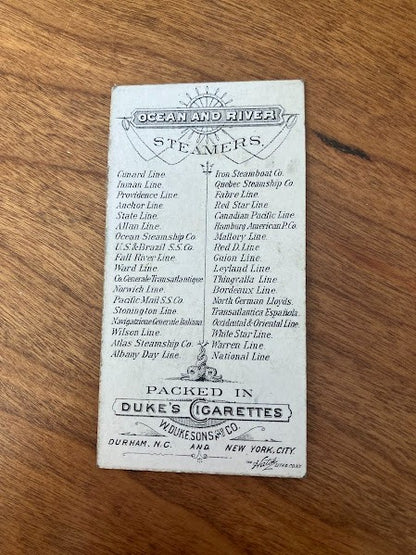 OCEAN AND RIVER
STEAMERS.
Cunard Line.
Inman Line.
Providence Line.
Anchor Line.
State Line.
Allan Line.
Ocean Steamship Co.
U.S. & Brazil S.S. Co.
Fall River Line.
Ward Line.
Co. Generale Transatlantique
Norwich Line.
Pacific Mail S.S. Co.
Stonington Line.
Navigatione Generale Italiana
Wilson Line.
Atlas Steamship Co.
Albany Day Line.
Iron Steamboat Co.
Quebec Steamship Co.
Fabre Line.
Red Star Line.
Canadian Pacific Line.
Hamburg American P. Co.
Mallory Line.
Red D. Line.
Guion Line.
Leyland Line.
Thingvalla Line.
Bordeaux Line.
North German Lloyds.
Transatlantica Española.
Occidental & Oriental Line.
White Star Line.
Warren Line.
National Line
PACKED IN
DUKE'S CIGARETTES
W. DUKE SONS AND CO.
DURHAM, N.C. AND NEW YORK, CITY.
THE